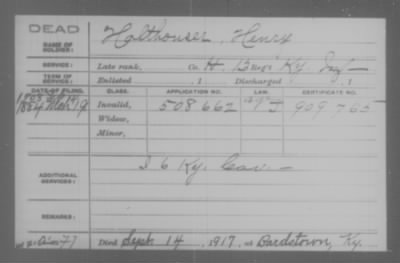 DEAD
NAME OF SOLDIER: Holthouser, Henry
SERVICE: Late rank, Co. H, 15 Reg't Ky. Inf
TERM OF SERVICE: Enlisted , 1 Discharged , 1
DATE OF FILING. CLASS. APPLICATION NO. LAW. CERTIFICATE NO.
1884 Mar 19 Invalid, 508 662 909 765
Widow,
Minor,
ADDITIONAL SERVICES: I 6 Ky. Cav.
REMARKS:
Died Sept. 14, 1917, at Bardstown, Ky.